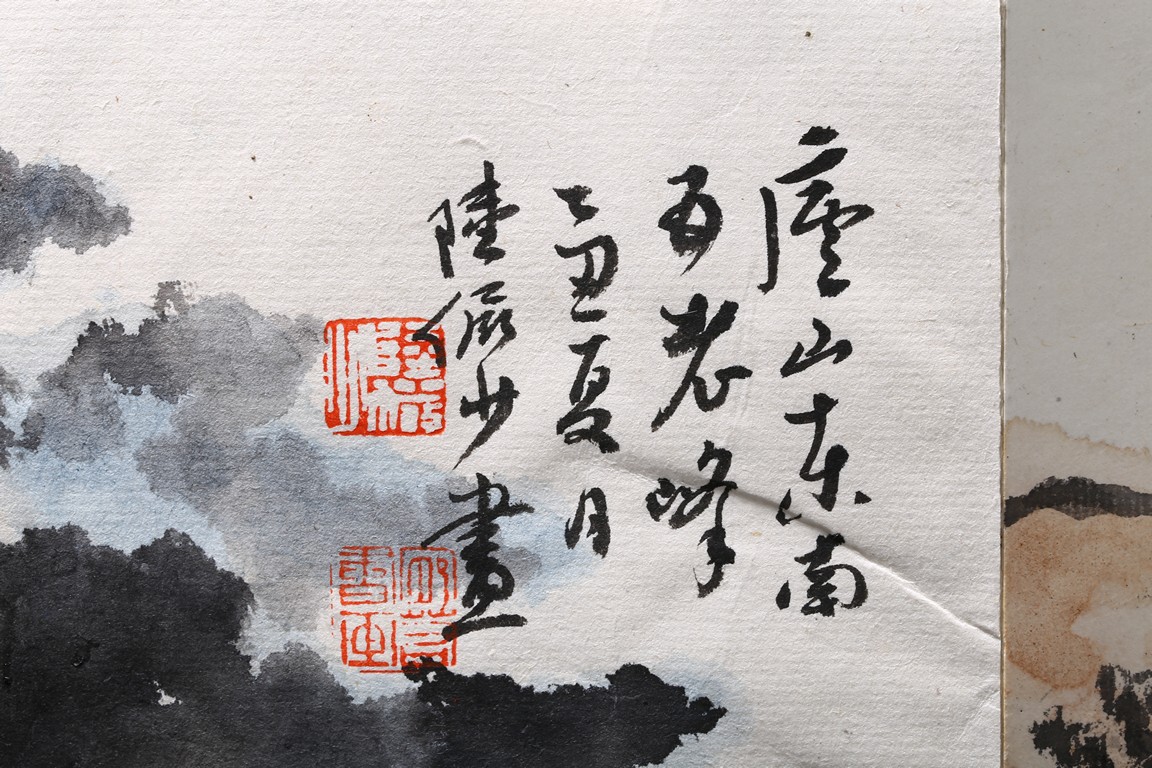 廬山东南
五老峰
乙丑夏月
陸俨少畫